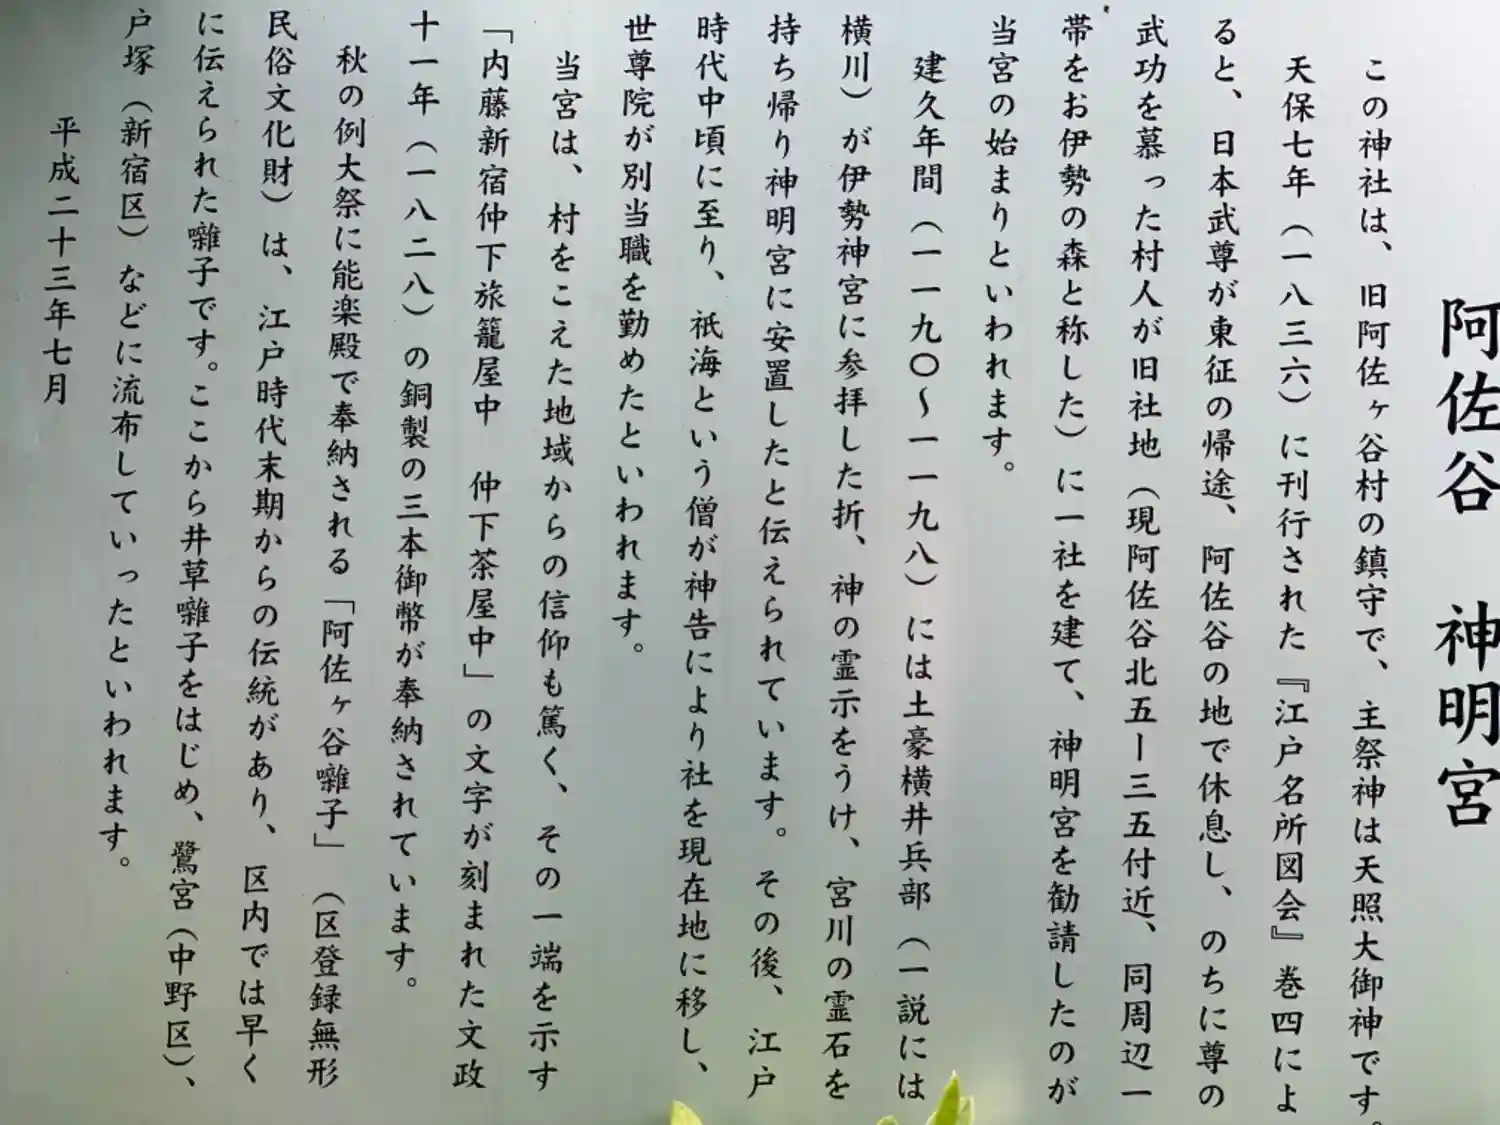 阿佐谷　神明宮
この神社は、旧阿佐ヶ谷村の鎮守で、主祭神は天照大御神です。
天保七年（一八三六）に刊行された『江戸名所図会』巻四によ
ると、日本武尊が東征の帰途、阿佐谷の地で休息し、のちに尊の
武功を慕った村人が旧社地（現阿佐谷北五ー三五付近、同周辺一
帯をお伊勢の森と称した）に一社を建て、神明宮を勧請したのが
当宮の始まりといわれます。
建久年間（一一九〇～一一九八）には土豪横井兵部（一説には
横川）が伊勢神宮に参拝した折、神の霊示をうけ、宮川の霊石を
持ち帰り神明宮に安置したと伝えられています。その後、江戸
時代中頃に至り、祇海という僧が神告により社を現在地に移し、
世尊院が別当職を勤めたといわれます。
当宮は、村をこえた地域からの信仰も篤く、その一端を示す
「内藤新宿仲下旅籠屋中　仲下茶屋中」の文字が刻まれた文政
十一年（一八二八）の銅製の三本御幣が奉納されています。
秋の例大祭に能楽殿で奉納される「阿佐ヶ谷囃子」（区登録無形
民俗文化財）は、江戸時代末期からの伝統があり、区内では早く
に伝えられた囃子です。ここから井草囃子をはじめ、鷺宮（中野区）、
戸塚（新宿区）などに流布していったといわれます。
平成二十三年七月